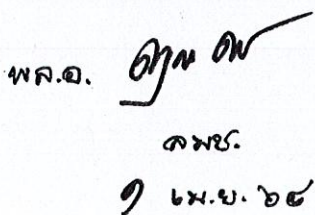 พล.อ.
ลมช.
๑ เม.ย. ๖๔